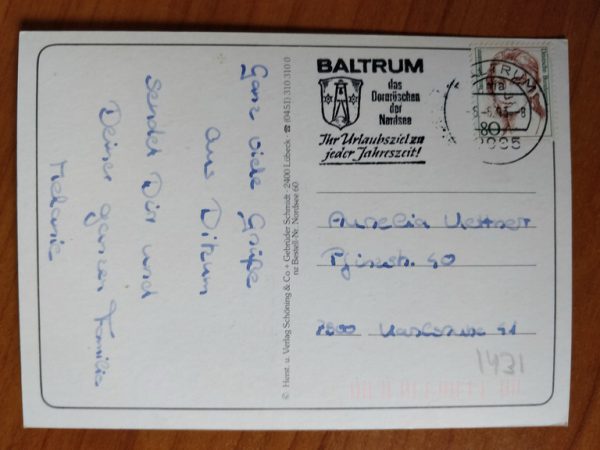 Ganz viele Grüße
aus Ditzum
sendet Dir und
Deiner ganzen Familie
Melanie
© Herst. u. Verlag Schöning & Co + Gebrüder Schmidt · 2400 Lübeck · ☎ (0451) 310 310 0
nz Bestell-Nr. Nordsee 60
BALTRUM
das
Dornröschen
der
Nordsee
Ihr Urlaubsziel zu
jeder Jahreszeit!
80
Aurelia
Pfinzstr. 40
Karlsruhe 41
1431